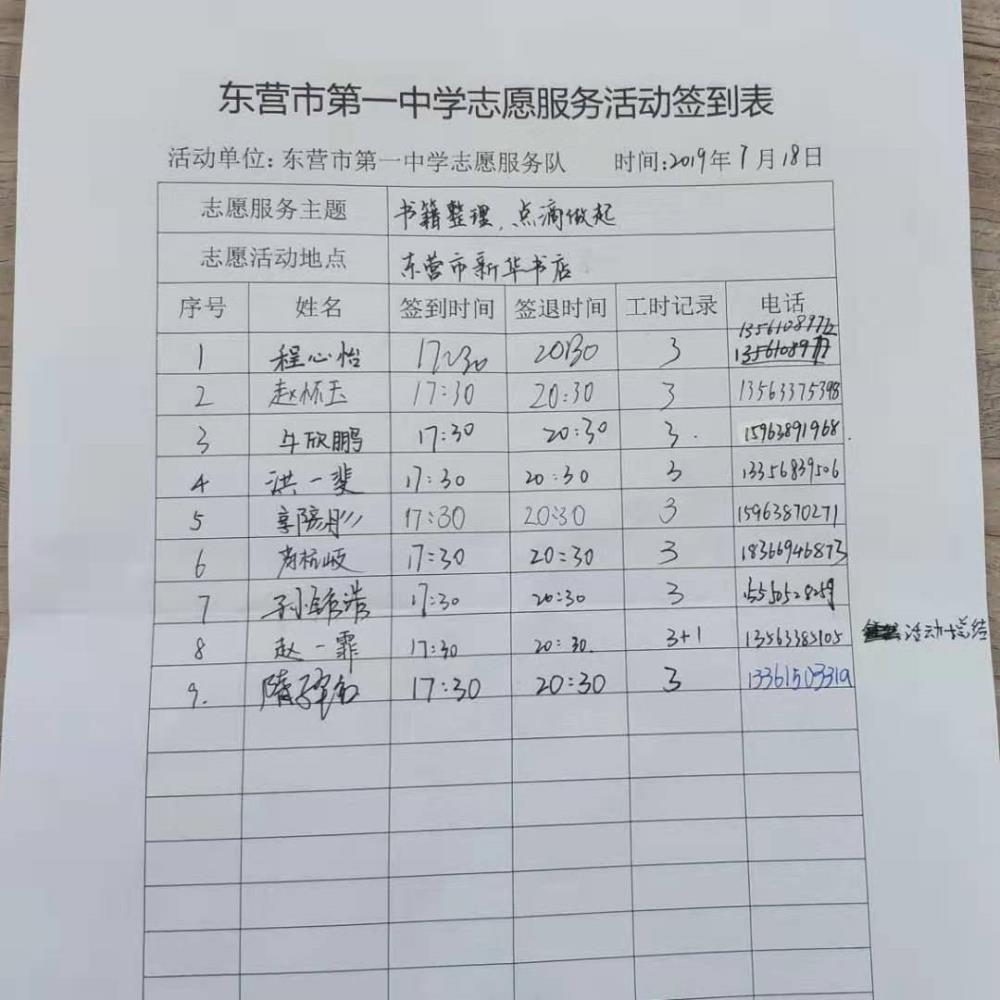 东营市第一中学志愿服务活动签到表
活动单位:东营市第一中学志愿服务队 时间:2019年7月18日
志愿服务主题 书籍整理,点滴做起
志愿活动地点 东营市新华书店
序号 姓名 签到时间 签退时间 工时记录 电话
1 程心怡 17:30 20:30 3
2 赵怀玉 17:30 20:30 3 13563375398
3 牛欣鹏 17:30 20:30 3. 15963891968.
4 洪一斐 17:30 20:30 3 13356839506
5 17:30 20:30 3 15963870271
6 肖杭岐 17:30 20:30 3 18366946873
7 17:30 20:30 3
8 赵一霏 17:30 20:30. 3+1 13563385105 活动+总结
9. 17:30 20:30 3 13361503319